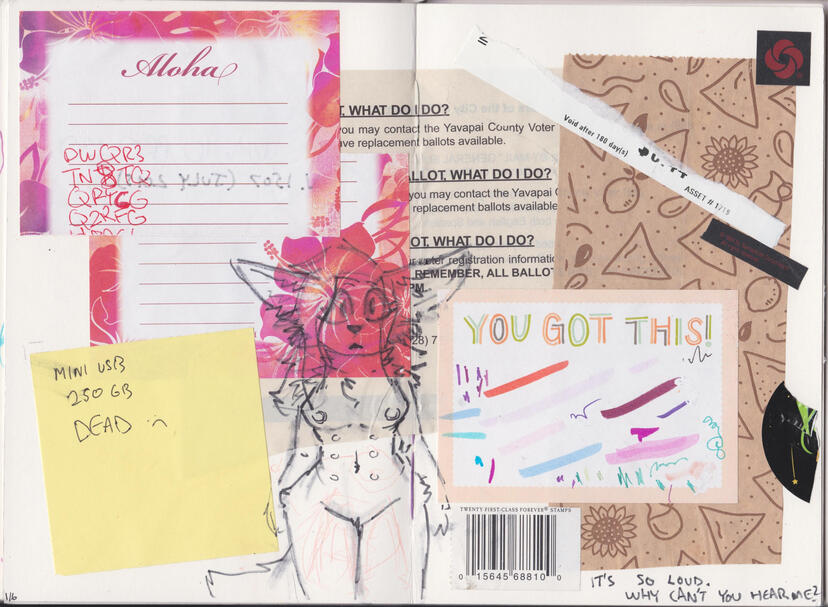 Aloha
DWQRB
QRYGG
Q2RFG
T. WHAT DO I DO?
you may contact the Yavapai County Voter
ave replacement ballots available.
ALLOT. WHAT DO I DO?
you may contact the Yavapai
replacement ballots available
OT. WHAT DO I DO?
voter registration informatio
REMEMBER, ALL BALLOT
PM.
28) 7
Void after 180 day(s)
ASSET #
YOU GOT THIS!
MINI USB
250 GB
DEAD :(
TWENTY FIRST-CLASS FOREVER® STAMPS
0 15645 68810 0
IT'S SO LOUD.
WHY CAN'T YOU HEAR ME?
1/6